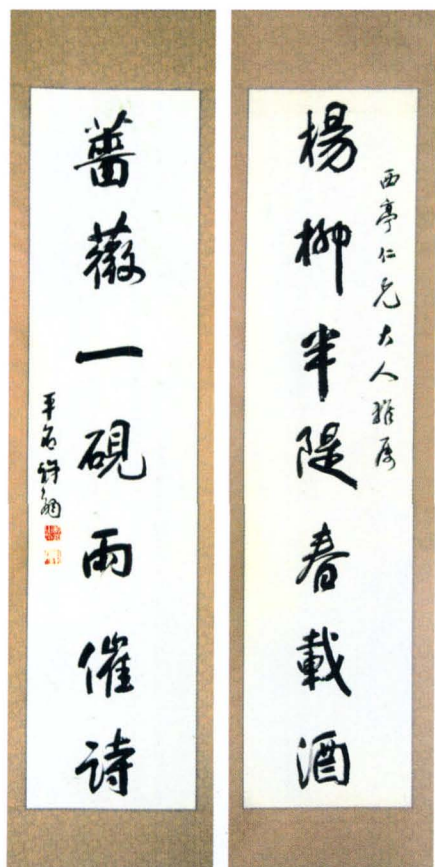 楊柳半隄春載酒
西亭仁兄大人雅屬
薔薇一硯雨催詩
平